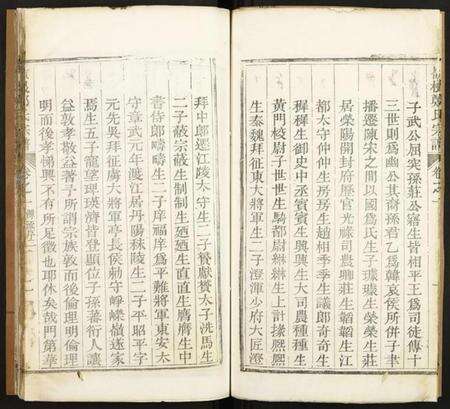 子武公屈突孫莊公寤生皆相平王爲司徒傳十
三世則爲幽公其裔孫君乙爲韓哀侯所併子孫
播遷陳宋之間以國爲氏生子
居滎陽開封府歷官光祿司農興莊生韜韜生江
都太守仲仲生房房生趙相季季生議郎奇奇生
穉穉生御史中丞賓賓生興興生大司農種種生
黃門校尉子世世生騎都尉綝綝生上計掾熙熙
生秦魏拜征東大將軍生二子澄渾少府大匠澄
拜中郎遷江陵太守生二子餐獻餐太子洗馬生
二子蔽宗蔽生制制生迺迺生直直生膺膺生中
書侍郎疇疇生二子庠福庠爲平難將軍東安太
守章武元年渡江居丹陽秣陵生二子平昭平字
元先吳拜征虜大將軍亭長侯勅守崢嶸嶺遂家
焉生五子寵望理瑛濟皆登顯位子孫蕃衍人讓
益敦孝敬益著予所謂宗族敦而後倫理明倫理
明而後孝悌興不有所足徵也耶休矣哉門第華